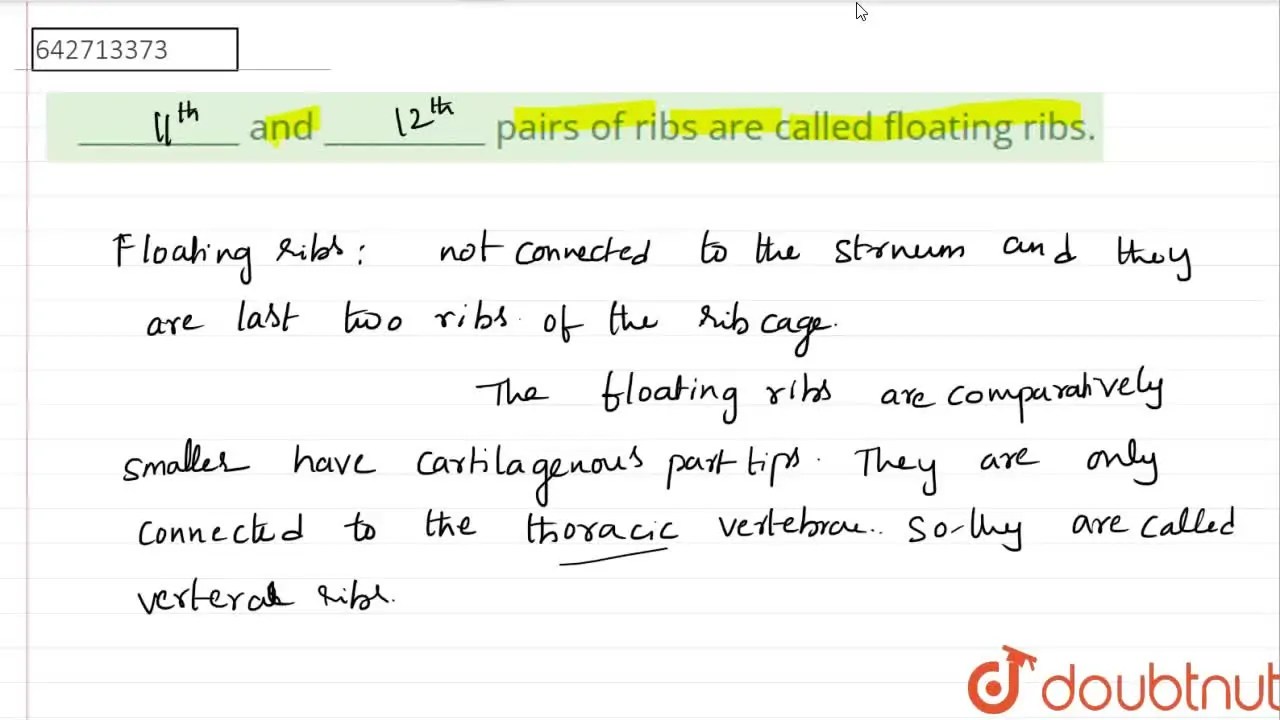 642713373
11th and 12th pairs of ribs are called floating ribs.
Floating ribs: not connected to the strneum and they
are last two ribs of the rib cage.
The floating ribs are comparatively
smaller have cartilagenous part tips. They are only
connected to the thoracic vertebrae.. so they are called
verteral ribs.
doubtnut